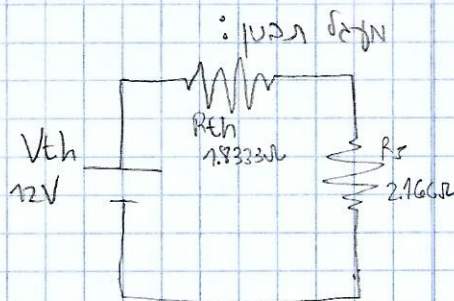 מעגל תבנין :
Rth
1.8333Ω
Vth
12V
R5
2.166Ω